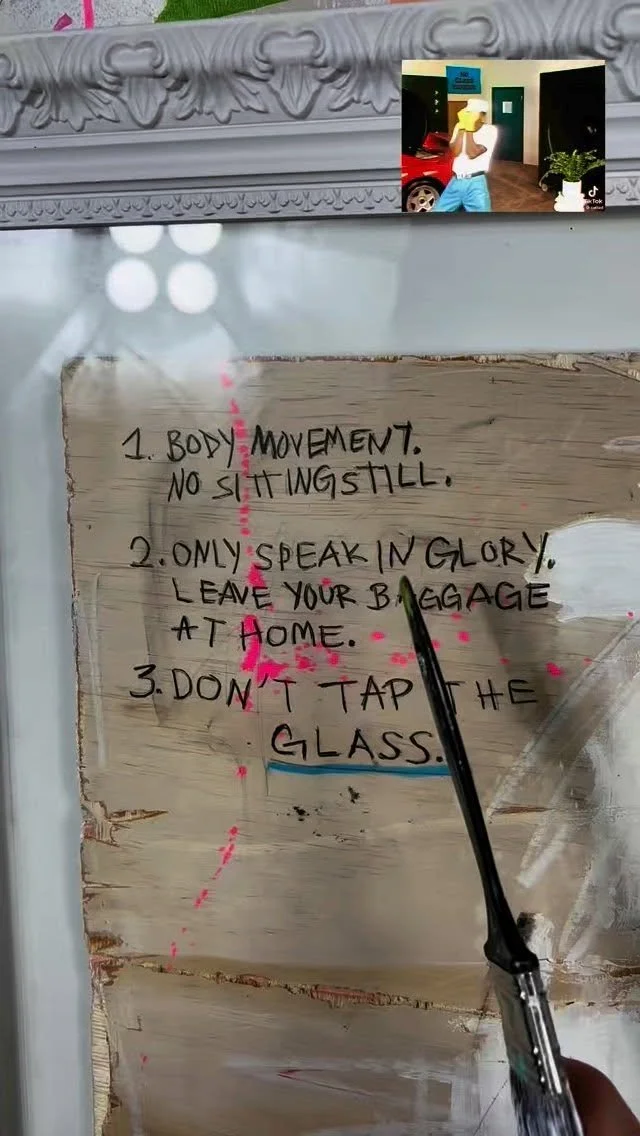 1. BODY MOVEMENT.
NO SITTING STILL.
2. ONLY SPEAK IN GLORY.
LEAVE YOUR BAGGAGE
AT HOME.
3. DON'T TAP THE
GLASS.
TikTok